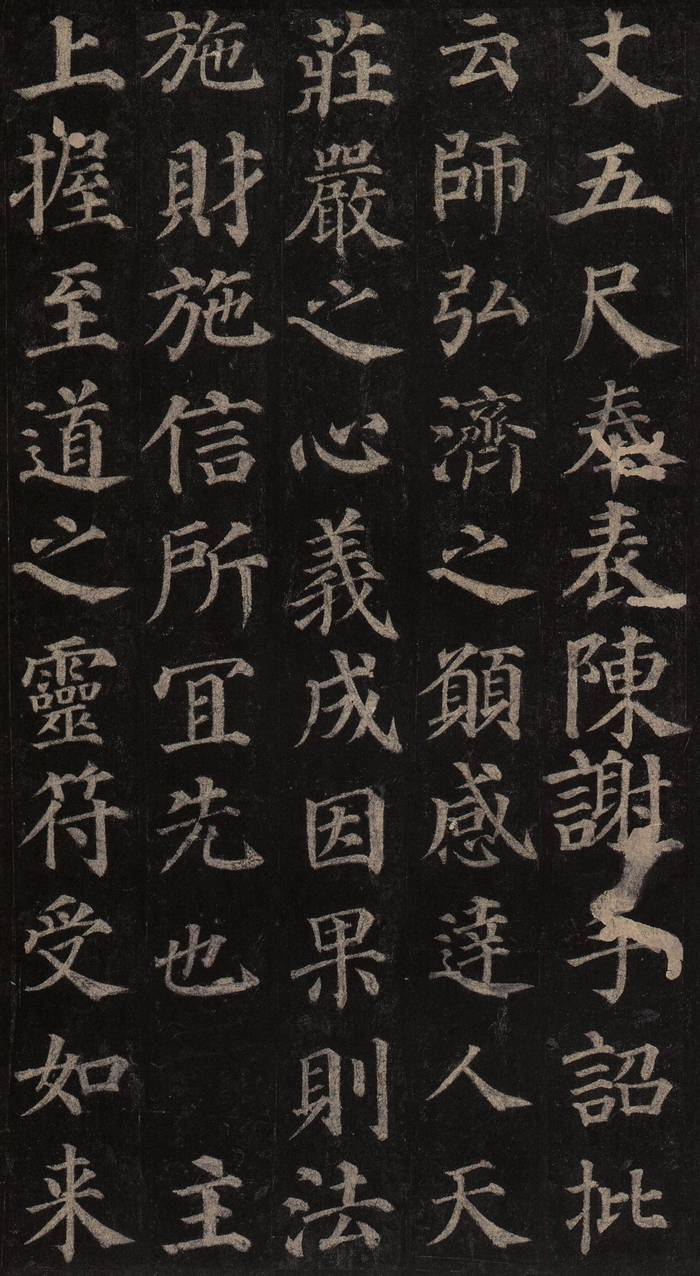 丈五尺奉表陳謝手詔批
云師弘濟之願感達人天
莊嚴之心義成因果則法
施財施信所宜先也　主
上握至道之靈符受如来